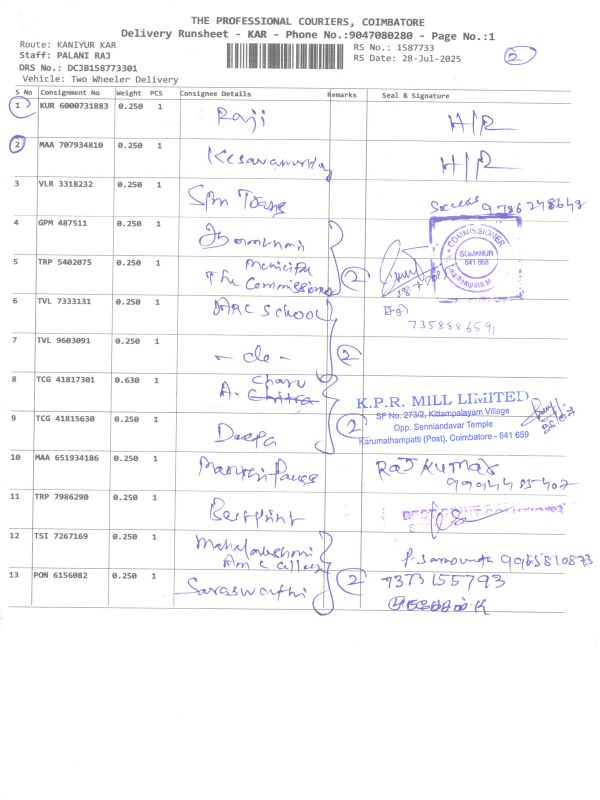 THE PROFESSIONAL COURIERS, COIMBATORE
Delivery Runsheet - KAR - Phone No.:9047080280 - Page No.:1
Route: KANIYUR KAR
RS No.: 1587733
Staff: PALANI RAJ
RS Date: 28-Jul-2025
2
DRS No.: DCJB158773301
Vehicle: Two Wheeler Delivery
S No Consignment No Weight PCS Consignee Details Remarks Seal & Signature
1 KUR 6000731883 0.250 1 Raji H/R
2 MAA 707934810 0.250 1 H/R
3 VLR 3318232 0.250 1 Spm
9786248648
4 GPM 487511 0.250 1
COMMISSIONER
SOMANUR
641 668
5 TRP 5402075 0.250 1 Municipal
The Commissioner 2
6 TVL 7333131 0.250 1 DARC School
7358886591
7 TVL 9603091 0.250 1 - do - 2
8 TCG 41817301 0.630 1 Charu
A. Chitra
K.P.R. MILL LIMITED
SF No. 273/2, Kittampalayam Village
Opp. Senniandavar Temple
Karumathampatti (Post), Coimbatore - 641 659
9 TCG 41815630 0.250 1 Deepa 2
10 MAA 651934186 0.250 1 RAJ KUMAR
11 TRP 7986290 0.250 1 Bestprint
12 TSI 7267169 0.250 1 Mahalakshmi
9965810873
13 PON 6156082 0.250 1 Saraswathi 2 7373155793